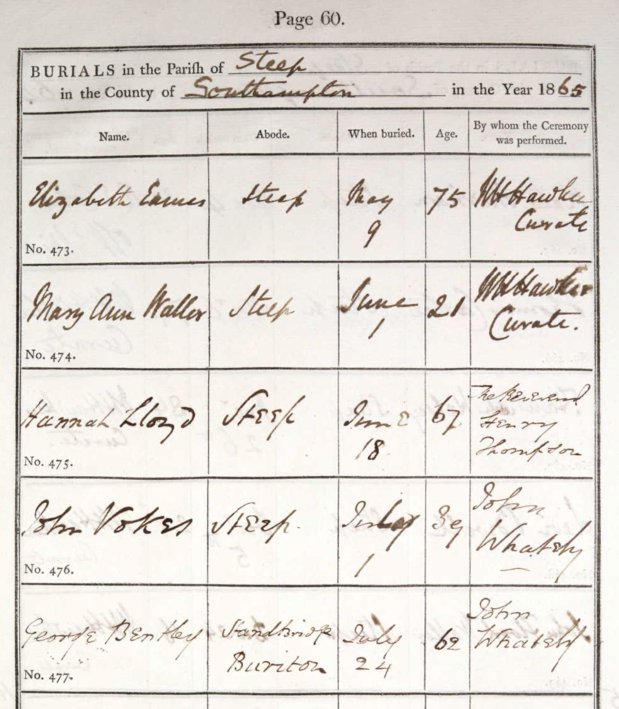 Page 60.
BURIALS in the Parish of Steep
in the County of Southampton in the Year 1865
Name. Abode. When buried. Age. By whom the Ceremony was performed.
Elizabeth Eames Steep May 9 75 WH Hawker Curate
No. 473.
Mary Ann Waller Steep June 1 21 WH Hawker Curate.
No. 474.
Hannah Lloyd Steep June 18 67 The Reverend Henry Thompson
No. 475.
John Vokes Steep. July 1 39 John Whately
No. 476.
George Bentley Buriton July 24 62 John Whately
No. 477.